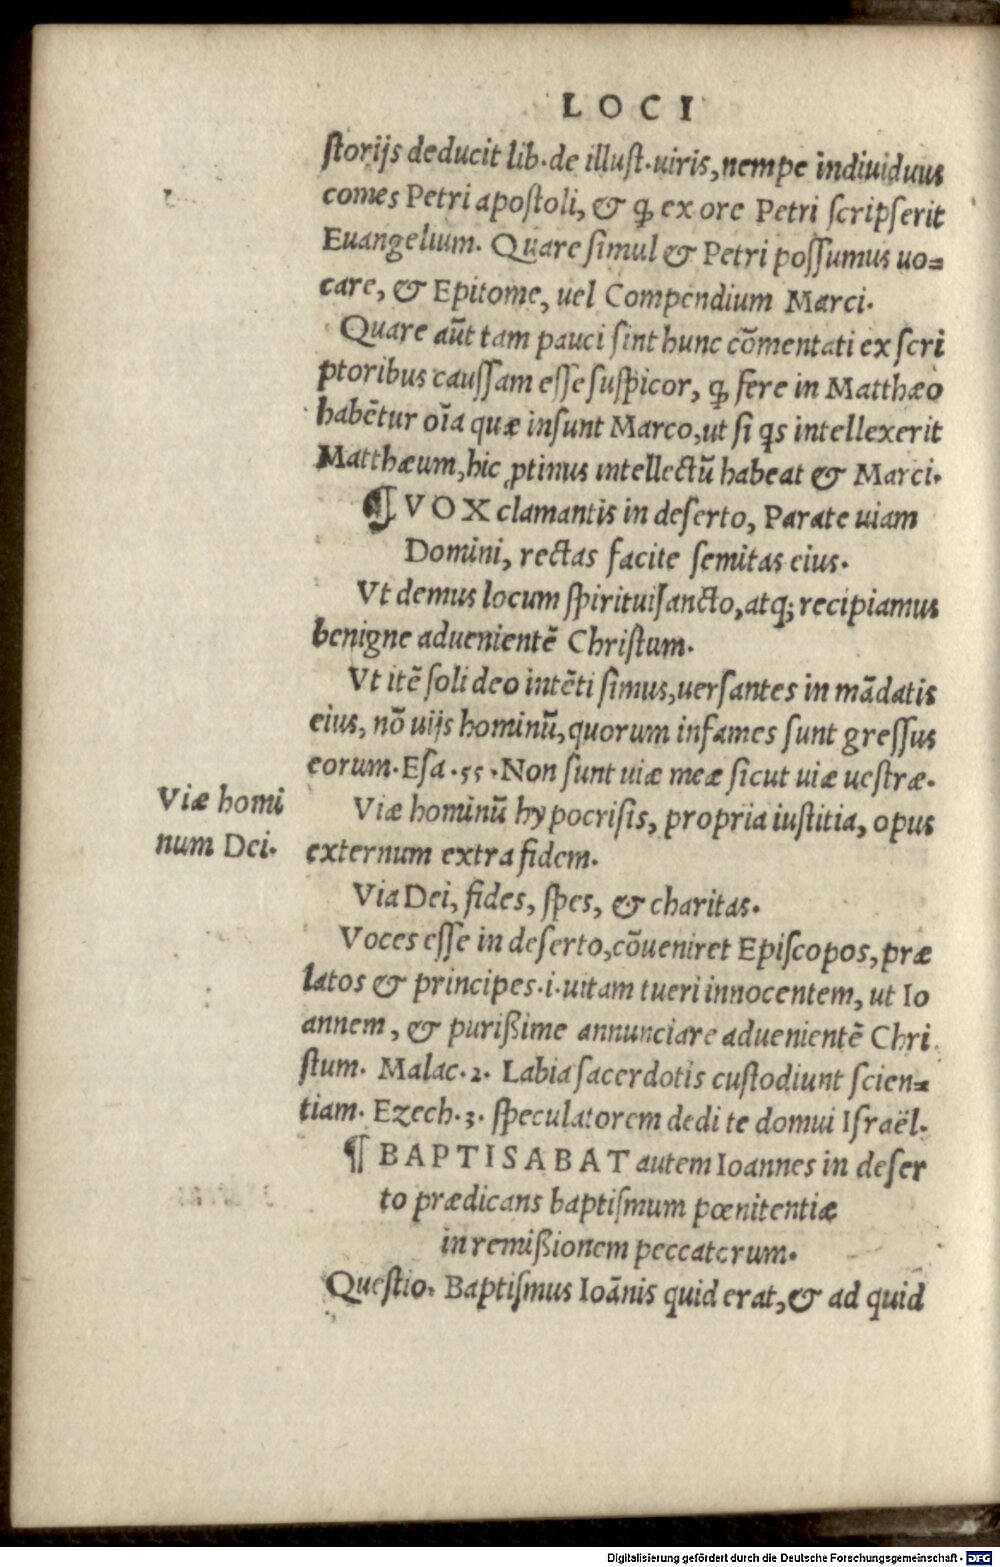 LOCI
ſtorijs deducit lib. de illuſt. uiris, nempe indiuiduus
comes Petri apoſtoli, & ꝙ ex ore Petri ſcripſerit
Euangelium. Quare ſimul & Petri poſſumus uo=
care, & Epitome, uel Compendium Marci.
Quare aũt tam pauci ſint hunc cõmentati ex ſcri
ptoribus cauſſam eſſe ſuſpicor, ꝙ fere in Matthæo
habẽtur oĩa quæ inſunt Marco, ut ſi qs intellexerit
Matthæum, hic ꝓtinus intellectũ habeat & Marci.
¶ VOX clamantis in deſerto, Parate uiam
Domini, rectas facite ſemitas eius.
Vt demus locum ſpirituiſancto, atq; recipiamus
benigne aduenientẽ Chriſtum.
Vt itẽ ſoli deo intẽti ſimus, uerſantes in mãdatis
eius, nõ uijs hominũ, quorum infames ſunt greſſus
eorum. Eſa. 55. Non ſunt uiæ meæ ſicut uiæ ueſtræ.
Viæ homi
num Dei.
Viæ hominũ hypocriſis, propria iuſtitia, opus
externum extra fidem.
Via Dei, fides, ſpes, & charitas.
Voces eſſe in deſerto, cõueniret Epiſcopos, præ
latos & principes. i. uitam tueri innocentem, ut Io
annem, & purißime annunciare aduenientẽ Chri
ſtum. Malac. 2. Labia ſacerdotis cuſtodiunt ſcien=
tiam. Ezech. 3. ſpeculatorem dedi te domui Iſraël.
¶ BAPTISABAT autem Ioannes in deſer
to prædicans baptiſmum pœnitentiæ
in remißionem peccatorum.
Queſtio. Baptiſmus Ioãnis quid erat, & ad quid
Digitalisierung gefördert durch die Deutsche Forschungsgemeinschaft - DFG